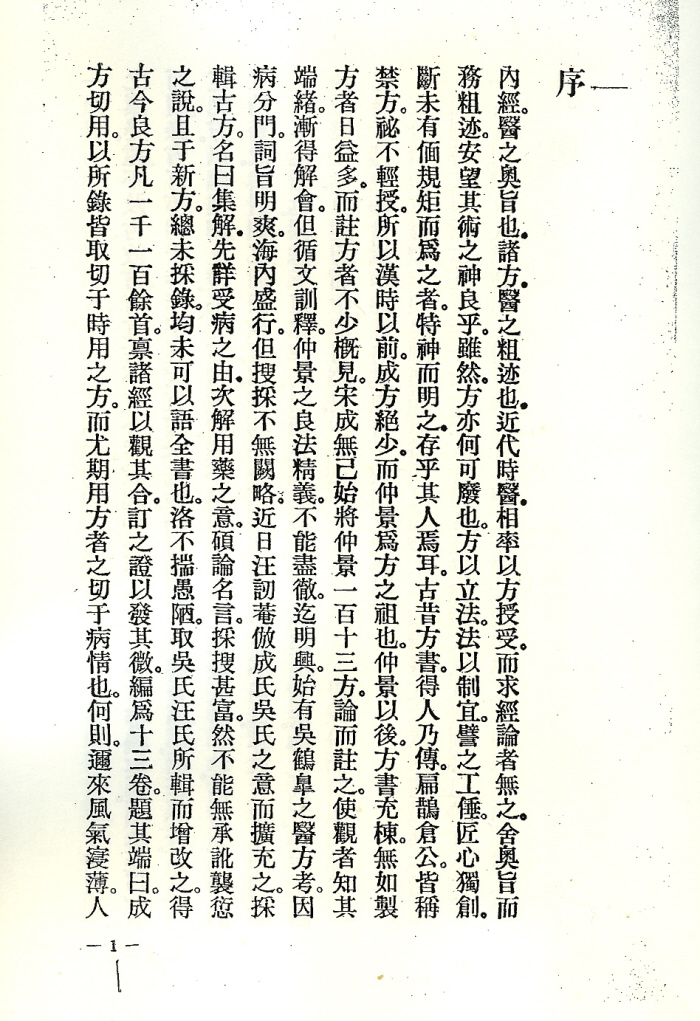 序一
內經。醫之奧旨也。諸方。醫之粗迹也。近代時醫。相率以方授受。而求經論者無之。舍奧旨而
務粗迹。安望其術之神良乎。雖然。方亦何可廢也。方以立法。法以制宜。譬之工倕。匠心獨創。
斷未有偭規矩而爲之者。特神而明之。存乎其人焉耳。古昔方書。得人乃傳。扁鵲倉公。皆稱
禁方。祕不輕授。所以漢時以前。成方絕少。而仲景爲方之祖也。仲景以後。方書充棟。無如製
方者日益多。而註方者不少概見。宋成無已始將仲景一百十三方。論而註之。使觀者知其
端緒。漸得解會。但循文訓釋。仲景之良法精義。不能盡徹。迄明興。始有吳鶴臯之醫方考。因
病分門。詞旨明爽。海內盛行。但搜採不無闕略。近日汪訒菴倣成氏吳氏之意而擴充之。採
輯古方。名曰集解。先詳受病之由。次解用藥之意。碩論名言。採搜甚富。然不能無承訛襲愆
之說。且于新方。總未採錄。均未可以語全書也。洛不揣愚陋。取吳氏汪氏所輯而增改之。得
古今良方凡一千一百餘首。稟諸經以觀其合。訂之證以發其微。編爲十三卷。題其端曰。成
方切用。以所錄皆取切于時用之方。而尤期用方者之切于病情也。何則。邇來風氣寖薄。人
— 1 —